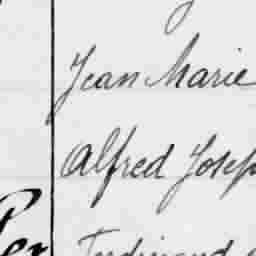 Jean Marie
Alfred Joseph
Ferdinand